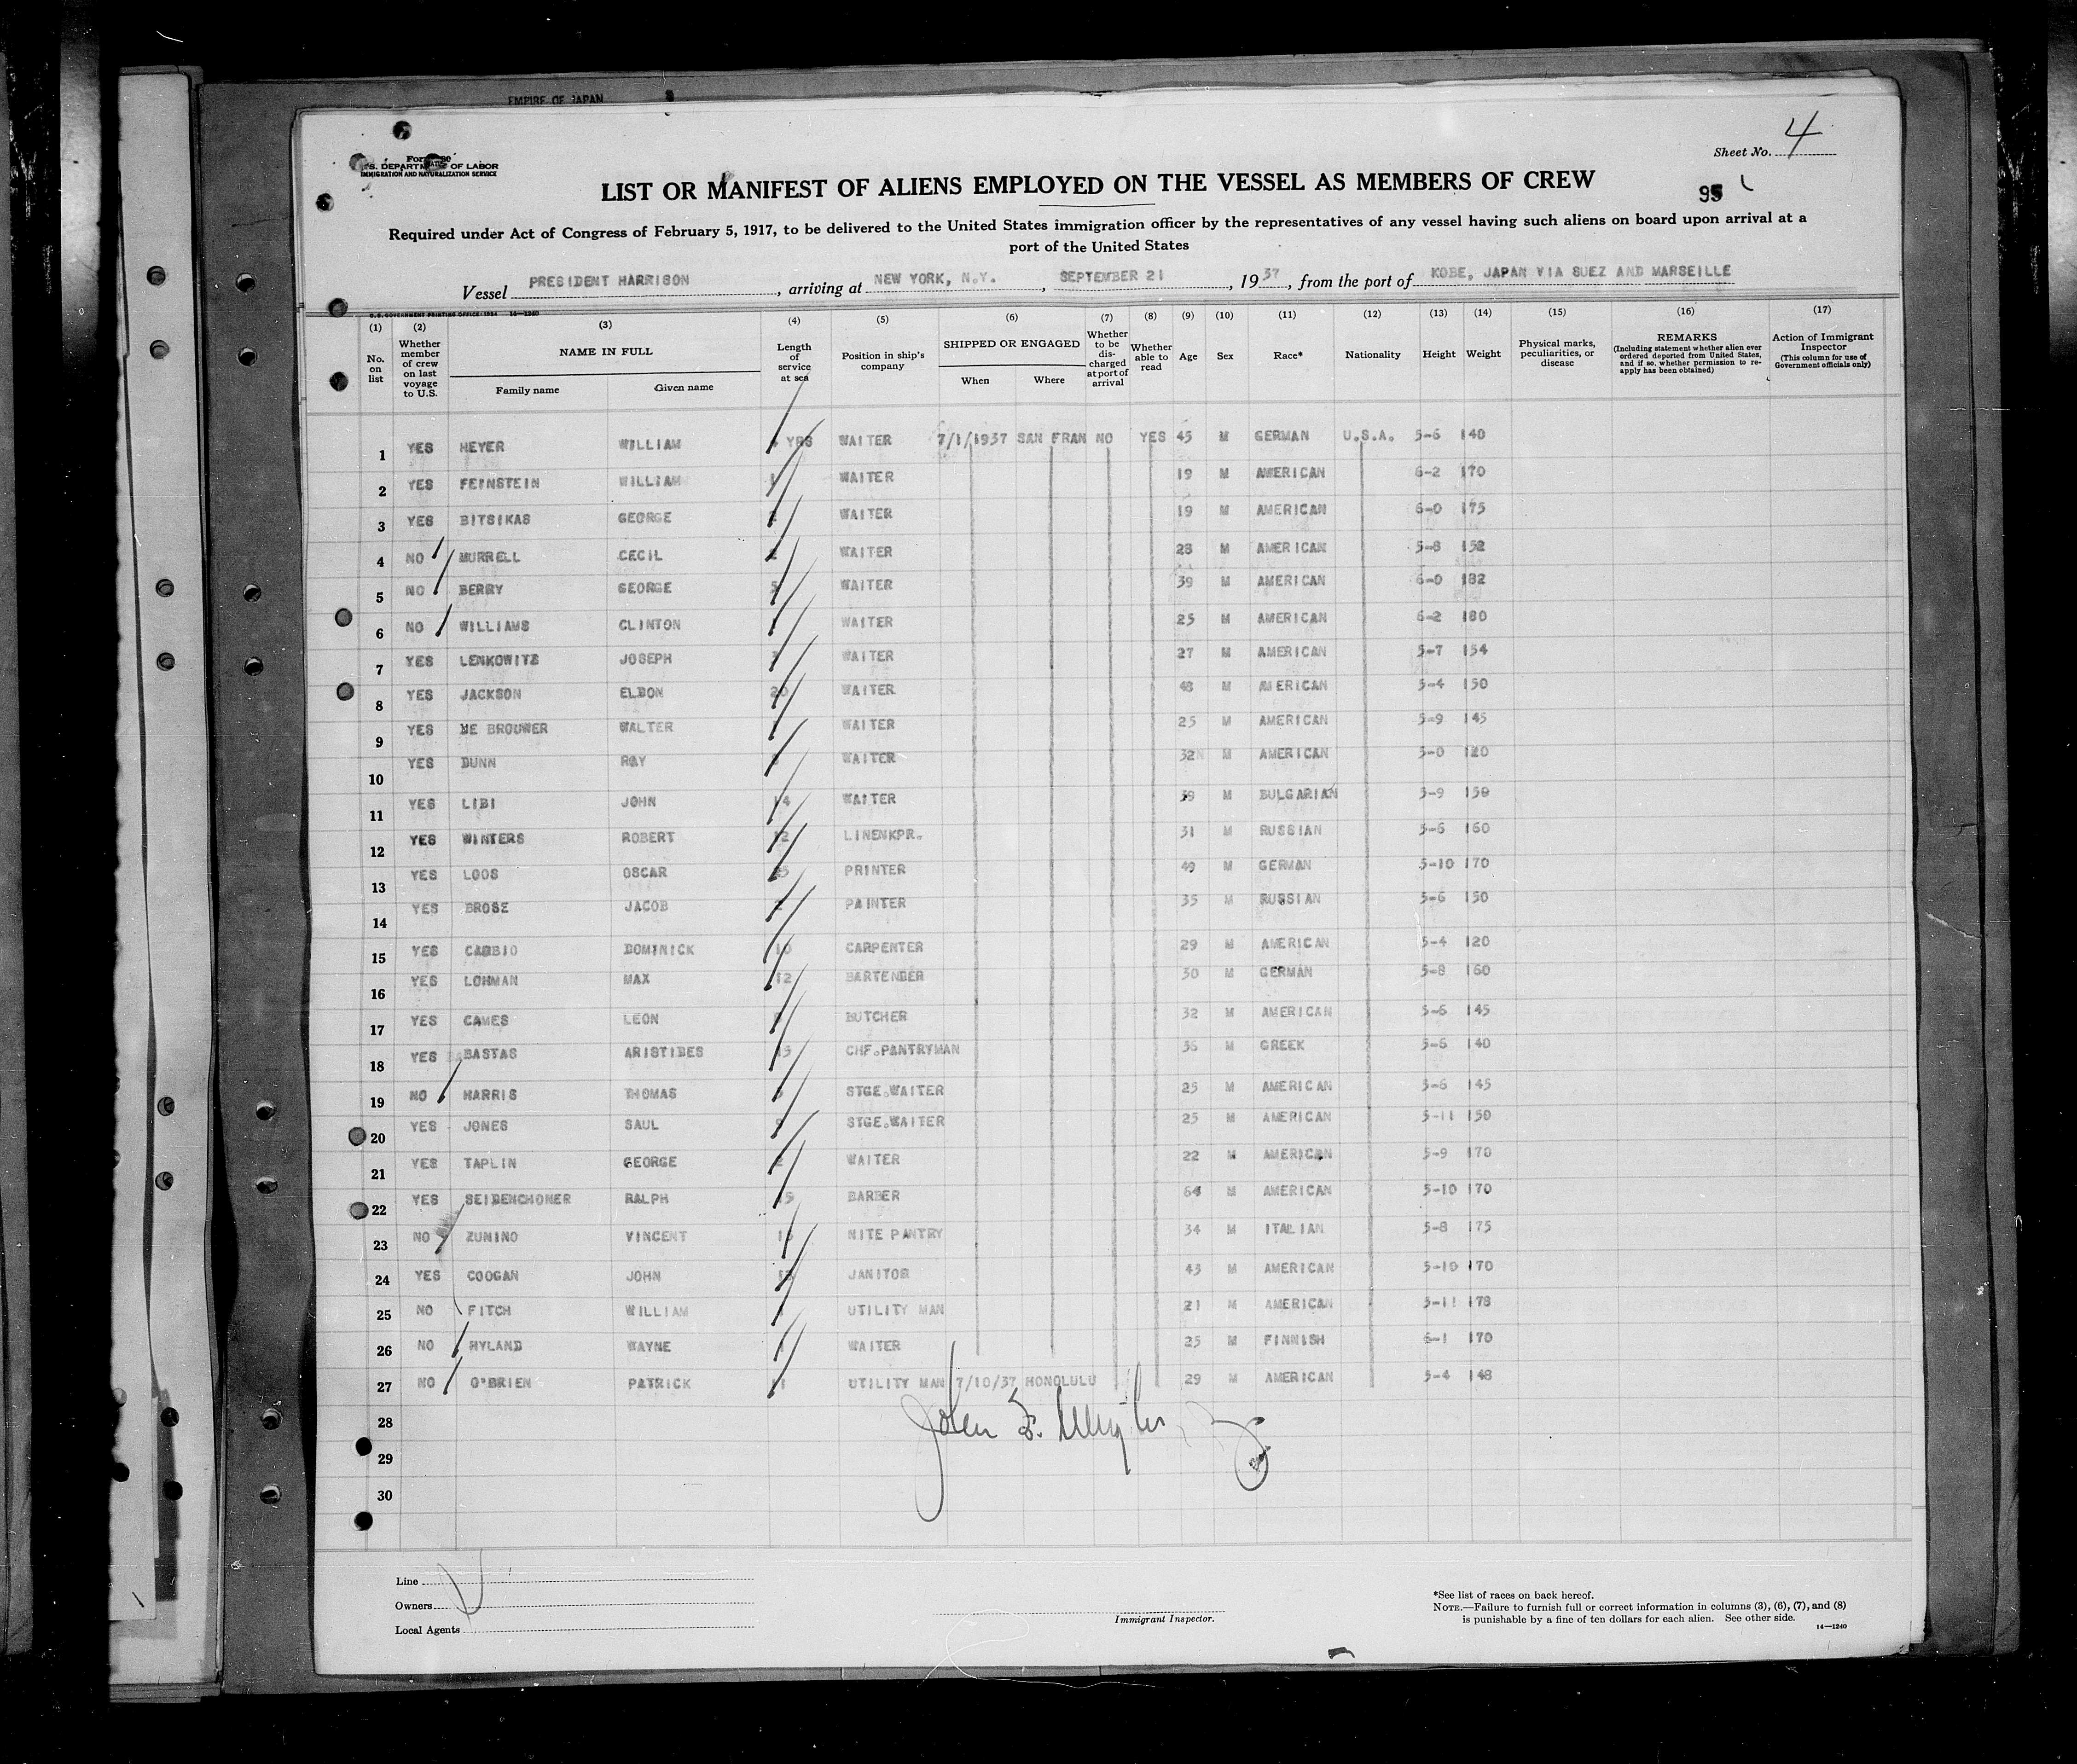 EMPIRE OF JAPAN
Sheet No. 4
U.S. DEPARTMENT OF LABOR
IMMIGRATION AND NATURALIZATION SERVICE
LIST OR MANIFEST OF ALIENS EMPLOYED ON THE VESSEL AS MEMBERS OF CREW
95
Required under Act of Congress of February 5, 1917, to be delivered to the United States immigration officer by the representatives of any vessel having such aliens on board upon arrival at a
port of the United States
Vessel PRESIDENT HARRISON, arriving at NEW YORK, N.Y., SEPTEMBER 21, 1937, from the port of KOBE, JAPAN VIA SUEZ AND MARSEILLE
U.S. GOVERNMENT PRINTING OFFICE: 1934 14—1240
(1) (2) (3) (4) (5) (6) (7) (8) (9) (10) (11) (12) (13) (14) (15) (16) (17)
No. on list
Whether member of crew on last voyage to U.S.
NAME IN FULL
Family name
Given name
Length of service at sea
Position in ship's company
SHIPPED OR ENGAGED
When
Where
Whether to be discharged at port of arrival
Whether able to read
Age
Sex
Race*
Nationality
Height
Weight
Physical marks, peculiarities, or disease
REMARKS
(Including statement whether alien ever ordered deported from United States, and if so, whether permission to re-apply has been obtained)
Action of Immigrant Inspector
(This column for use of Government officials only)
1 YES HEYER WILLIAM YRS WAITER 7/1/1937 SAN FRAN NO YES 45 M GERMAN U.S.A. 5-6 140
2 YES FEINSTEIN WILLIAM 1 WAITER 19 M AMERICAN 6-2 170
3 YES BITSIKAS GEORGE 2 WAITER 19 M AMERICAN 6-0 175
4 NO MURRELL CECIL 2 WAITER 28 M AMERICAN 5-8 152
5 NO BERRY GEORGE 5 WAITER 39 M AMERICAN 6-0 182
6 NO WILLIAMS CLINTON WAITER 25 M AMERICAN 6-2 180
7 YES LENKOWITZ JOSEPH WAITER 27 M AMERICAN 5-7 154
8 YES JACKSON ELDON 20 WAITER 48 M AMERICAN 5-4 150
9 YES DE BROUWER WALTER WAITER 25 M AMERICAN 5-9 145
10 YES DUNN RAY WAITER 32 M AMERICAN 5-0 120
11 YES LIBI JOHN 14 WAITER 39 M BULGARIAN 5-9 150
12 YES WINTERS ROBERT 12 LINENKPR. 31 M RUSSIAN 5-6 160
13 YES LOOS OSCAR PRINTER 49 M GERMAN 5-10 170
14 YES BROSE JACOB PAINTER 35 M RUSSIAN 5-6 150
15 YES CABBIO DOMINICK 10 CARPENTER 29 M AMERICAN 5-4 120
16 YES LOHMAN MAX 12 BARTENDER 50 M GERMAN 5-8 160
17 YES CAMES LEON BUTCHER 32 M AMERICAN 5-6 145
18 YES BASTAS ARISTIDES 15 CHF.PANTRYMAN 36 M GREEK 5-6 140
19 NO HARRIS THOMAS STGE.WAITER 25 M AMERICAN 5-6 145
20 YES JONES SAUL STGE.WAITER 25 M AMERICAN 5-11 150
21 YES TAPLIN GEORGE 2 WAITER 22 M AMERICAN 5-9 170
22 YES SEIDENCHONER RALPH 15 BARBER 64 M AMERICAN 5-10 170
23 NO ZUNINO VINCENT NITE PANTRY 34 M ITALIAN 5-8 175
24 YES COOGAN JOHN JANITOR 43 M AMERICAN 5-10 170
25 NO FITCH WILLIAM UTILITY MAN 21 M AMERICAN 5-11 178
26 NO HYLAND WAYNE WAITER 25 M FINNISH 6-1 170
27 NO O'BRIEN PATRICK UTILITY MAN 7/10/37 HONOLULU 29 M AMERICAN 5-4 148
28
29
30
John F.
Line
Owners
Local Agents
Immigrant Inspector.
*See list of races on back hereof.
NOTE.—Failure to furnish full or correct information in columns (3), (6), (7), and (8)
is punishable by a fine of ten dollars for each alien. See other side.
14—1240